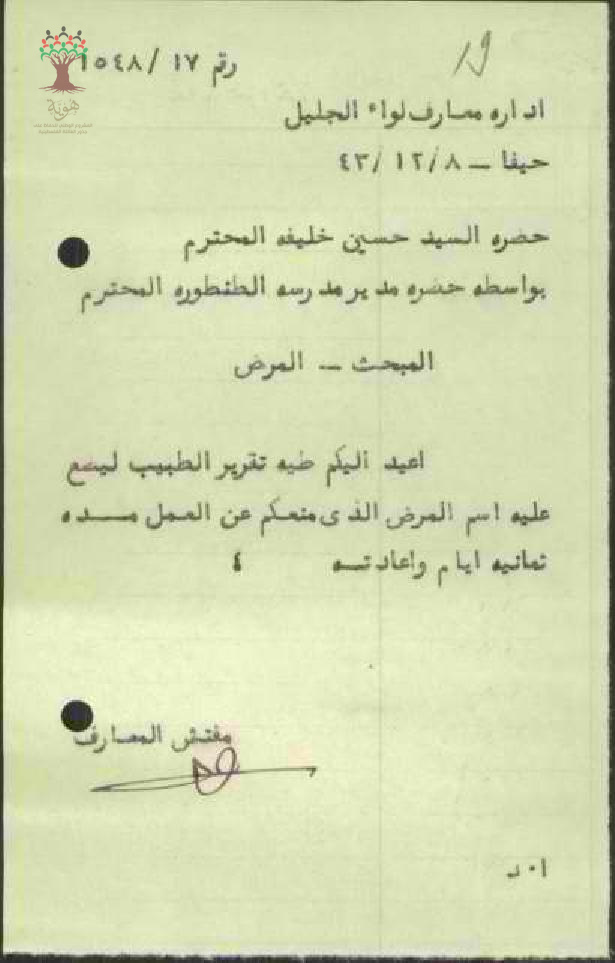 19
رقم ١٧ /١٥٤٨
هوية
اداره معارف لواء الجليل
حيفا – ٨/١٢/٤٣
حضره السيد حسين خليفه المحترم
بواسطه حضره مدير مدرسه الطنطوره المحترم
المبحث – المرض
اعيد اليكم طيه تقرير الطبيب ليضع
عليه اسم المرض الذى منعكم عن العمل مـــده
ثمانيه ايام واعادتـه ٤
مفتش المعارف
ا٠ د